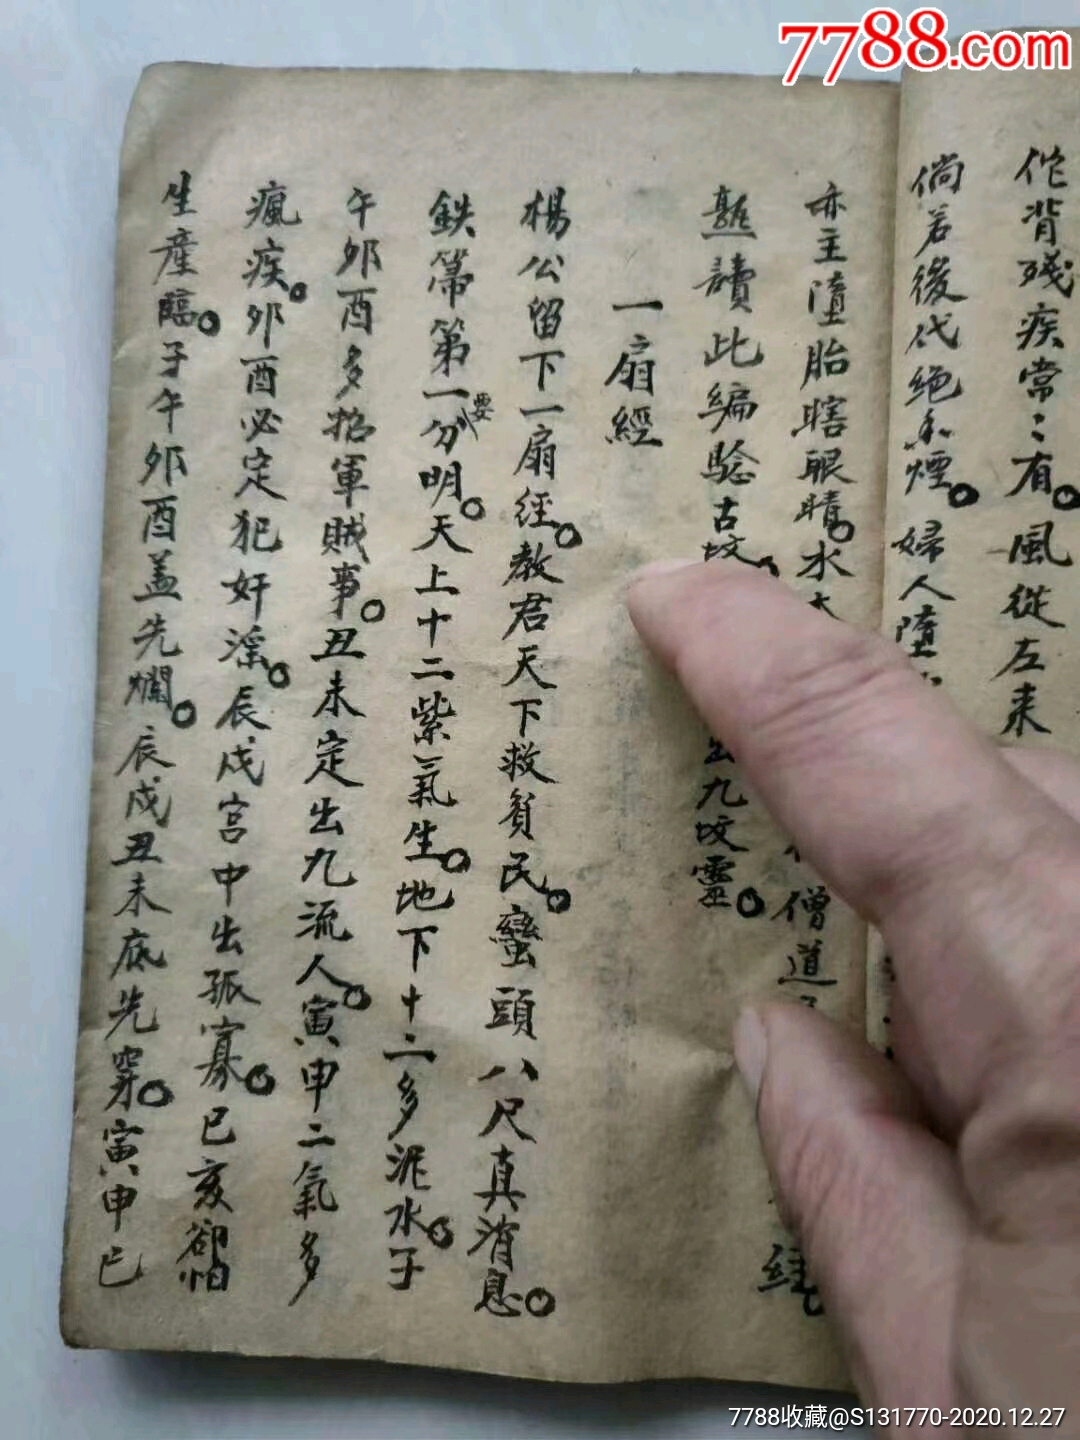 7788.com
佗背殘疾常〻有。風從左来
倘若後代絶香煙。婦人墮
亦主墮胎瞎眼睛。水
僧道
經。
熟讀此編驗古坟。
出九坟靈。
一扇經
楊公留下一扇經。教君天下救貧民。巒頭八尺真消息。
鉄箒第一要分明。天上十二紫氣生。地下十二多泥水。子
午夘酉多招軍賊事。丑未定出九流人。寅申二氣多
瘋疾。夘酉必定犯奸淫。辰戌宮中出孤寡。巳亥卻怕
生產臨。子午夘酉盖先爛。辰戌丑未底先穿。寅申巳
7788收藏@S131770-2020.12.27